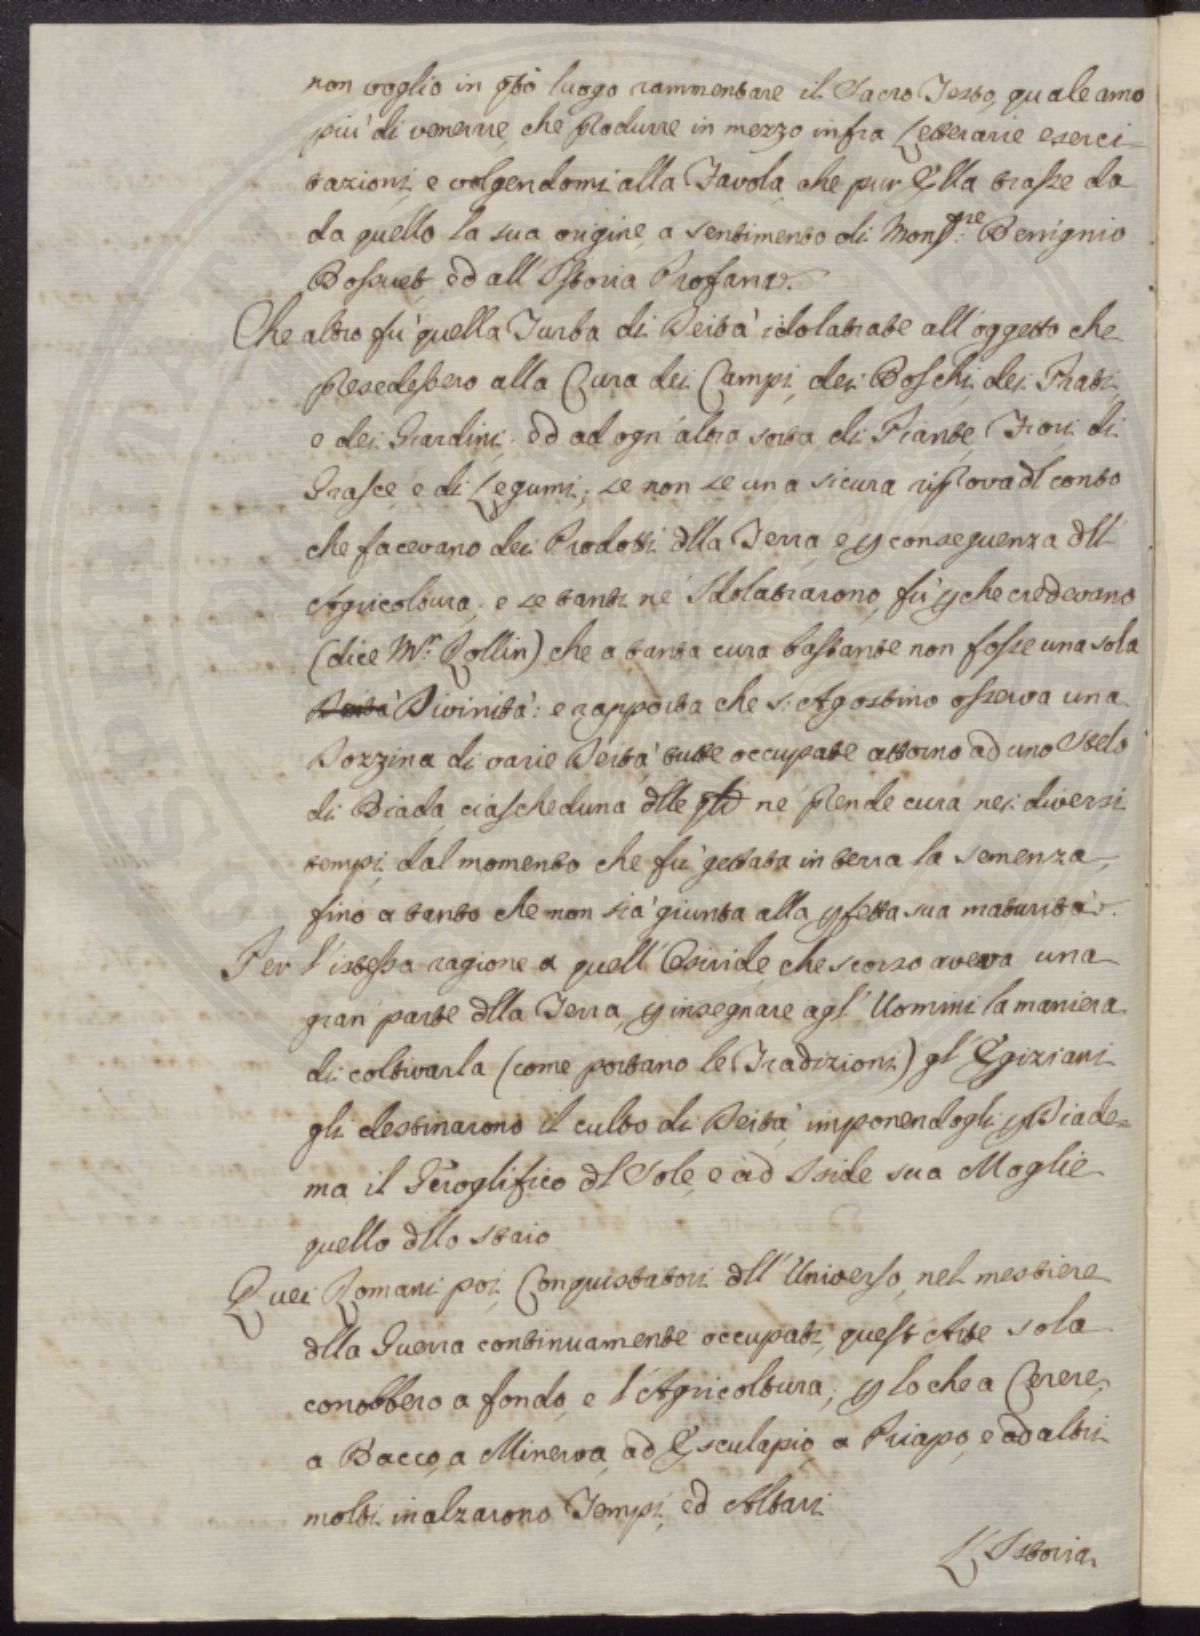 non voglio in qto luogo rammentare il Sacro Testo, quale amo
più di venerare, che produrre in mezzo infra Letterarie eserci-
tazioni, e volgendomi alla Favola, che pur Ella trasse da
da quello la sua origine, a sentimento di Monsre: Benignio
Bossuet, ed all'Istoria Profana.
Che altro fù quella Turba di Deità idolatrate all'oggetto che
presedessero alla Cura dei Campi, dei Boschi, dei Prati,
e dei Giardini, ed ad ogn'altra sorta di Piante, Fiori di
Grasce, e di Legumi, se non se una sicura riprova dl conto
che facevano dei Prodotti dlla Terra, e p conseguenza dll'
Agricoltura, e se tanti ne Idolatrarono, fù pche credevano
(dice Mr. Rollin) che a tanta cura bastante non fosse una sola
Deità Divinità: e rapporta che S. Agostino osserva una
Dozzina di varie Deità tutte occupate attorno ad uno Stelo
di Biada, ciascheduna dlle qli ne prende cura nei diversi
tempi, dal momento che fù gettata in terra la semenza,
fino a tanto che non sia giunta alla pfetta sua maturità.
Per l'istessa ragione a quell'Osiride, che scorso aveva una
gran parte dlla Terra, p insegnare agl'Uomini la maniera
di coltivarla (come portano le Tradizioni) gl'Egiziani
gli destinarono il culto di Deità, imponendogli p Diade-
ma il Geroglifico dl Sole, e ad Iside sua Moglie
quello dllo staio
Quei Romani poi, Conquistatori dll'Universo, nel mestiere
dlla Guerra continuamente occupati, quest'Arte sola
conobbero a fondo, e l'Agricoltura, p lo che a Cerere,
a Bacco, a Minerva, ad Esculapio, a Priapo, e ad altri
molti inalzarono Tempi, ed Altari
L'Istoria